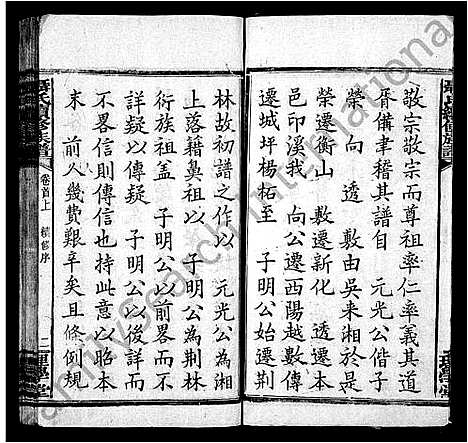 敬宗敬宗而尊祖率仁率義其道
胥備聿稽其自 元光公偕子
榮 向 透 敷由吳來湘於是
榮遷衡山 敷遷新化 透遷本
邑印溪我 向公遷酉陽越數傳
遷城坪楊柘至 子明公始遷荆
林故初譜之作以 元光公為湘
上落籍鼻祖以 子明公為荆林
衍族祖蓋 子明公以前畧而不
詳疑以傳疑 子明公以後詳而
不畧信則傳信也持此意以昭本
末 前人幾費艱辛矣且條例規
氏續修族譜
卷首上 續修序
二